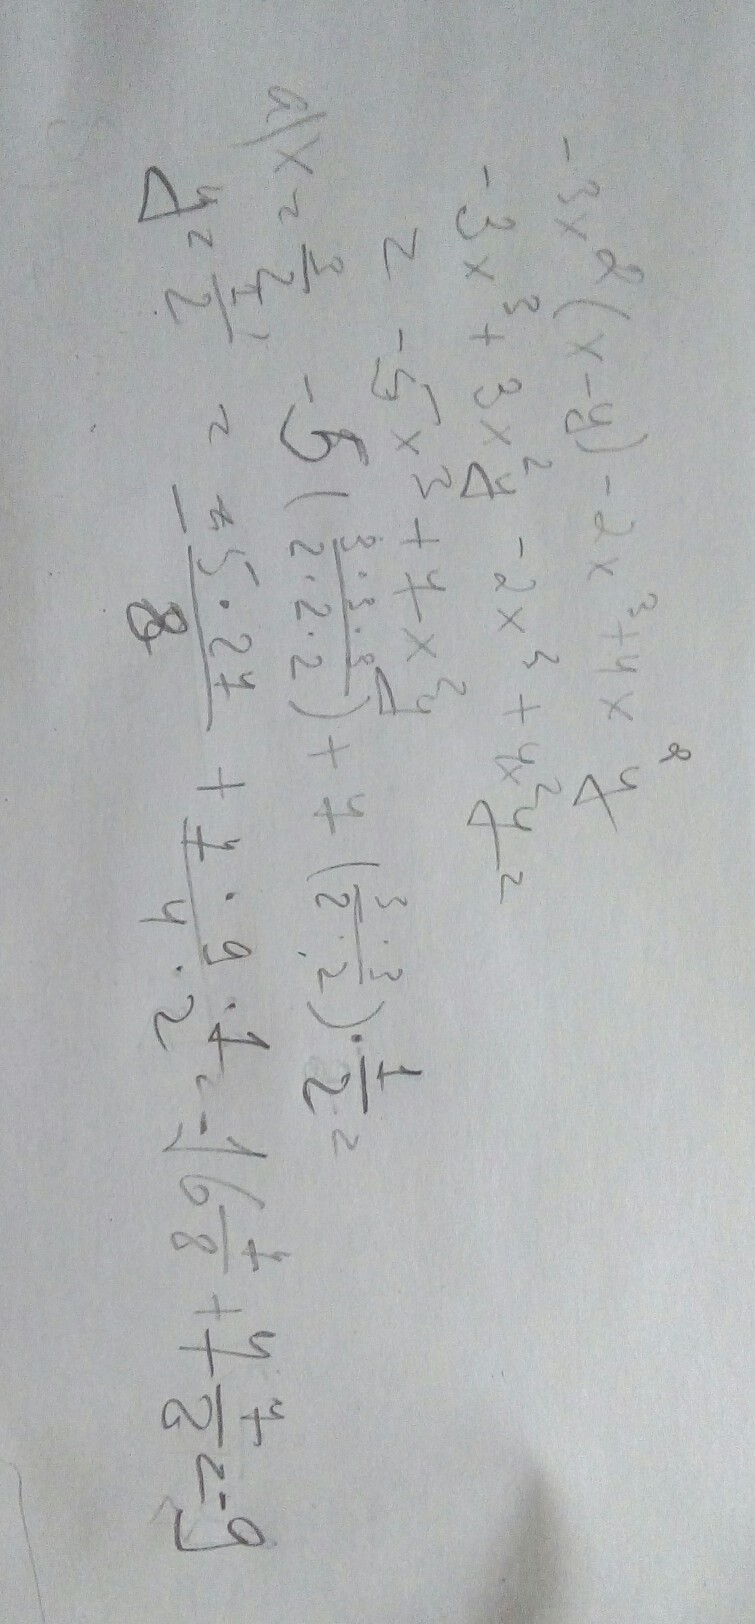 -3x²(x-y)-2x³+4x²y
-3x³+3x²y-2x³+4x²y=
= -5x³+7x²y
a) x = 3/2 -5(3·3·3/2·2·2)+7(3/2·3/2)·1/2=
y = 1/2, = -5·27/8 + 7·9·1/4·2 = -16 7/8 + 7 7/8 = -9